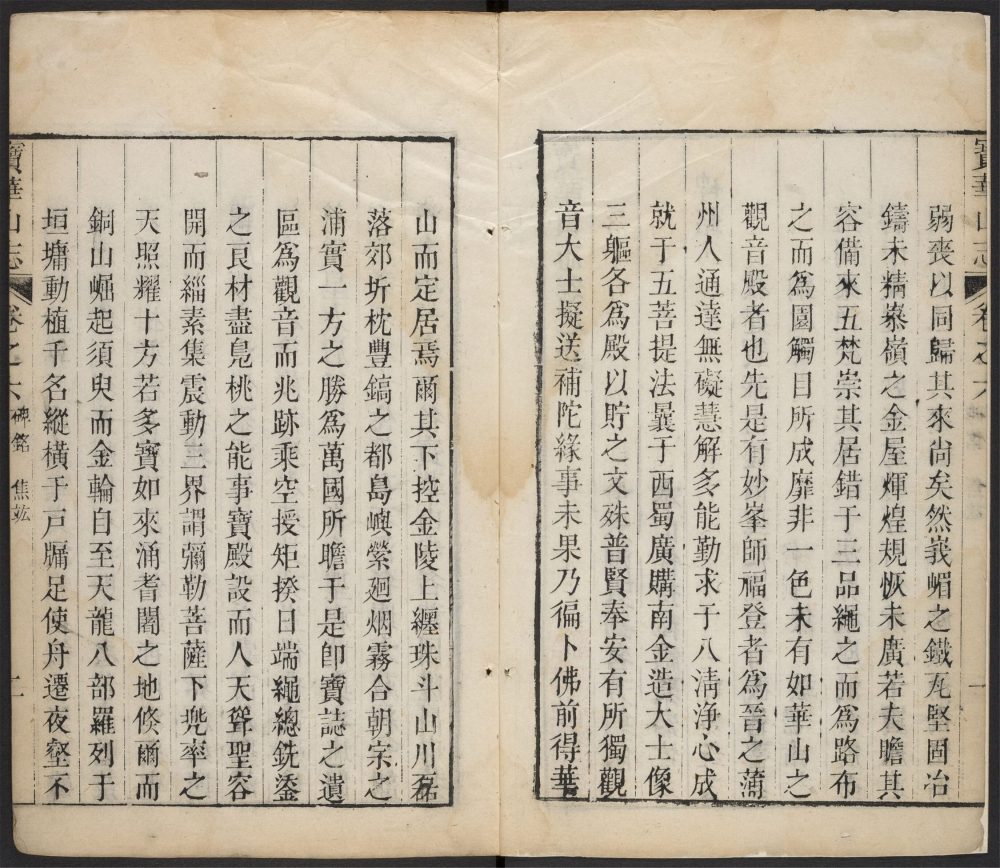 寶華山志
卷之六
一
弱喪以同歸其來尚矣然峩嵋之鐵瓦堅固冶
鑄未精泰嶺之金屋煇煌規恢未廣若夫瞻其
容備來五梵崇其居錯于三品繩之而爲路布
之而爲園觸目所成靡非一色未有如華山之
觀音殿者也先是有妙峯師福登者爲晉之蒲
州人通達無礙慧解多能勤求于八淸淨心成
就于五菩提法曩于西蜀廣購南金造大士像
三軀各爲殿以貯之文殊普賢奉安有所獨觀
音大士擬送補陀緣事未果乃徧卜佛前得華
山而定居焉爾其下控金陵上纏珠斗山川磊
落郊圻枕豐鎬之都島嶼縈廻烟霧合朝宗之
浦實一方之勝爲萬國所瞻于是卽寶誌之遺
區爲觀音而兆跡乘空授矩揆日端繩總銑鋈
之良材盡鳧桃之能事寶殿設而人天聳聖容
開而緇素集震動三界謂彌勒菩薩下兜率之
天照耀十方若多寶如來涌耆闍之地倏爾而
銅山崛起須臾而金輪自至天龍八部羅列于
垣墉動植千名縱橫于戶牖足使舟遷夜壑不
寶華山志
卷之六
碑銘
焦竑
二